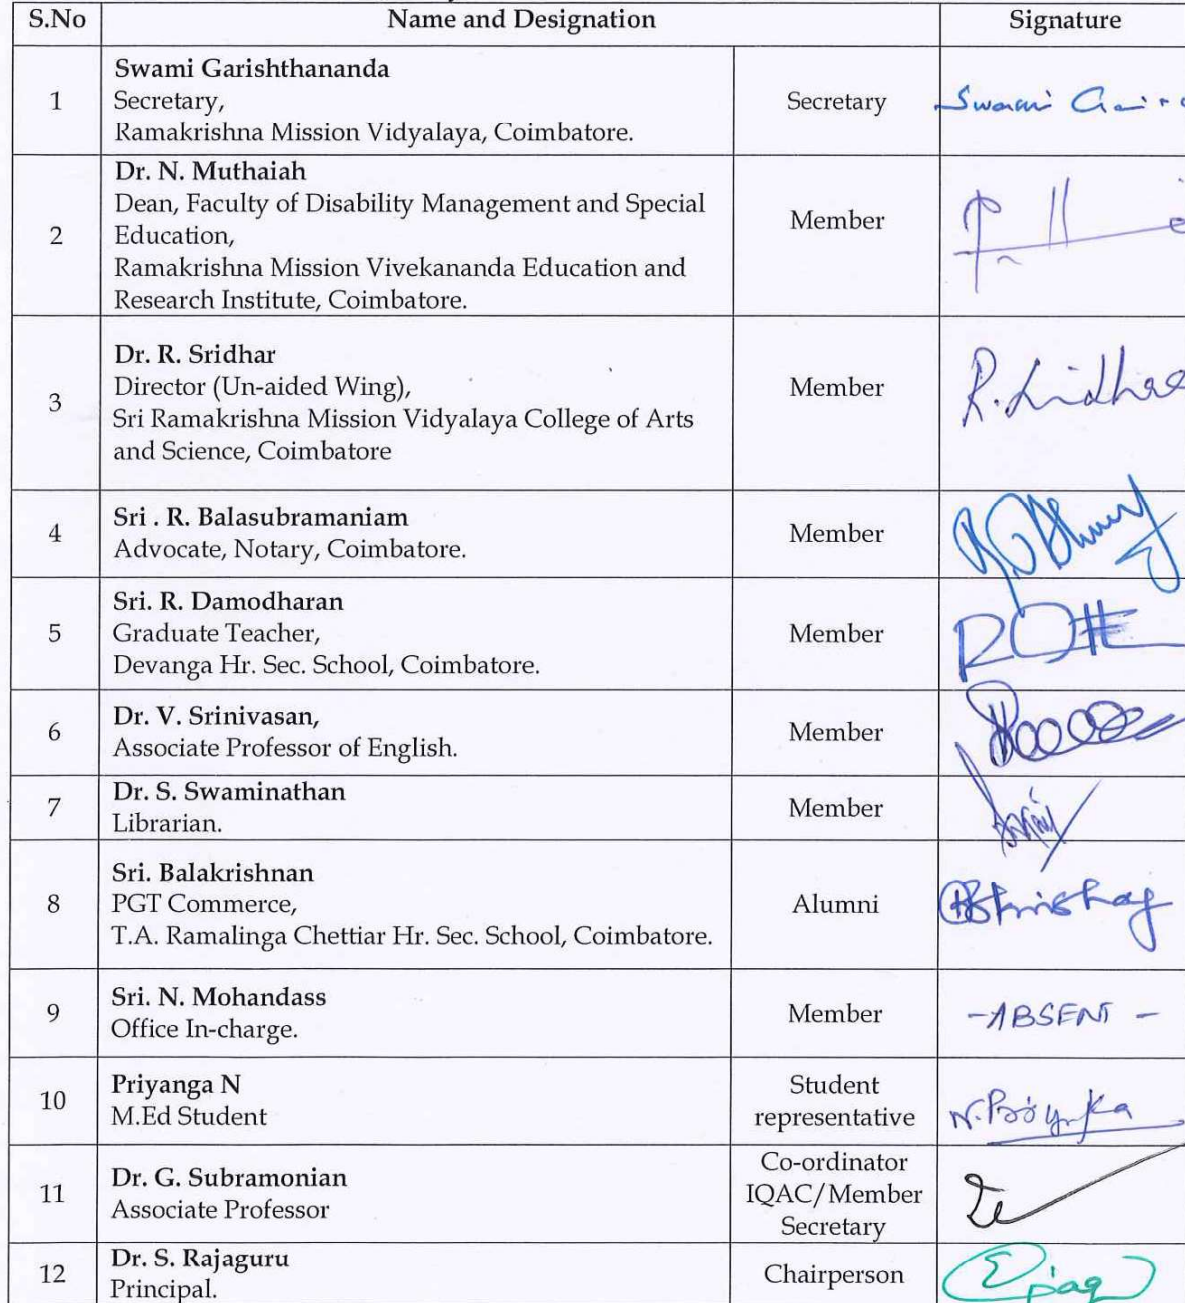 S.No Name and Designation Signature
1 Swami Garishthananda
Secretary,
Ramakrishna Mission Vidyalaya, Coimbatore.
Secretary
Swami
2 Dr. N. Muthaiah
Dean, Faculty of Disability Management and Special
Education,
Ramakrishna Mission Vivekananda Education and
Research Institute, Coimbatore.
Member
3 Dr. R. Sridhar
Director (Un-aided Wing),
Sri Ramakrishna Mission Vidyalaya College of Arts
and Science, Coimbatore
Member
4 Sri . R. Balasubramaniam
Advocate, Notary, Coimbatore.
Member
5 Sri. R. Damodharan
Graduate Teacher,
Devanga Hr. Sec. School, Coimbatore.
Member
6 Dr. V. Srinivasan,
Associate Professor of English.
Member
7 Dr. S. Swaminathan
Librarian.
Member
8 Sri. Balakrishnan
PGT Commerce,
T.A. Ramalinga Chettiar Hr. Sec. School, Coimbatore.
Alumni
9 Sri. N. Mohandass
Office In-charge.
Member
-ABSENT -
10 Priyanga N
M.Ed Student
Student
representative
11 Dr. G. Subramonian
Associate Professor
Co-ordinator
IQAC/Member
Secretary
12 Dr. S. Rajaguru
Principal.
Chairperson